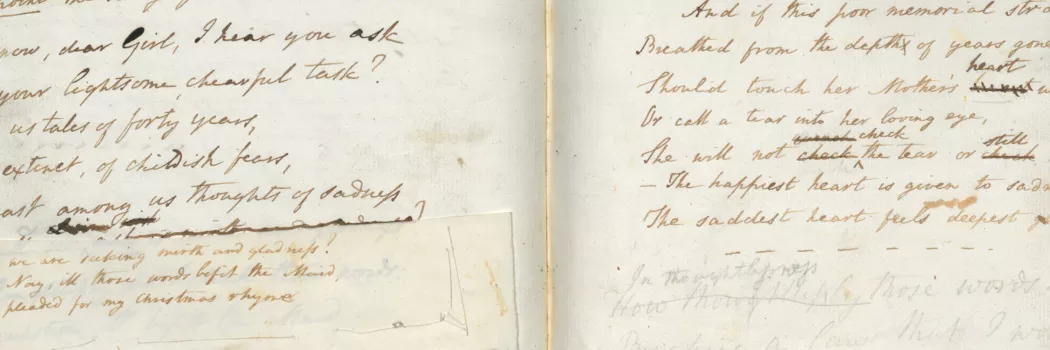 now, dear Girl, I hear you ask
your lightsome, chearful task?
us tales of forty years,
extinct, of childish fears,
ast among us thoughts of sadness
we are seeking mirth and gladness?
Nay, ill those words befit the Maid,
pleaded for my Christmas rhyme
And if this poor memorial stra
Breathed from the depth of years gone
heart
Should touch her Mother's
Or call a tear into her loving eye,
check still
She will not check the tear or check
— The happiest heart is given to sadn
The saddest heart feels deepest
In thoughtlessness
those words.
that I wo